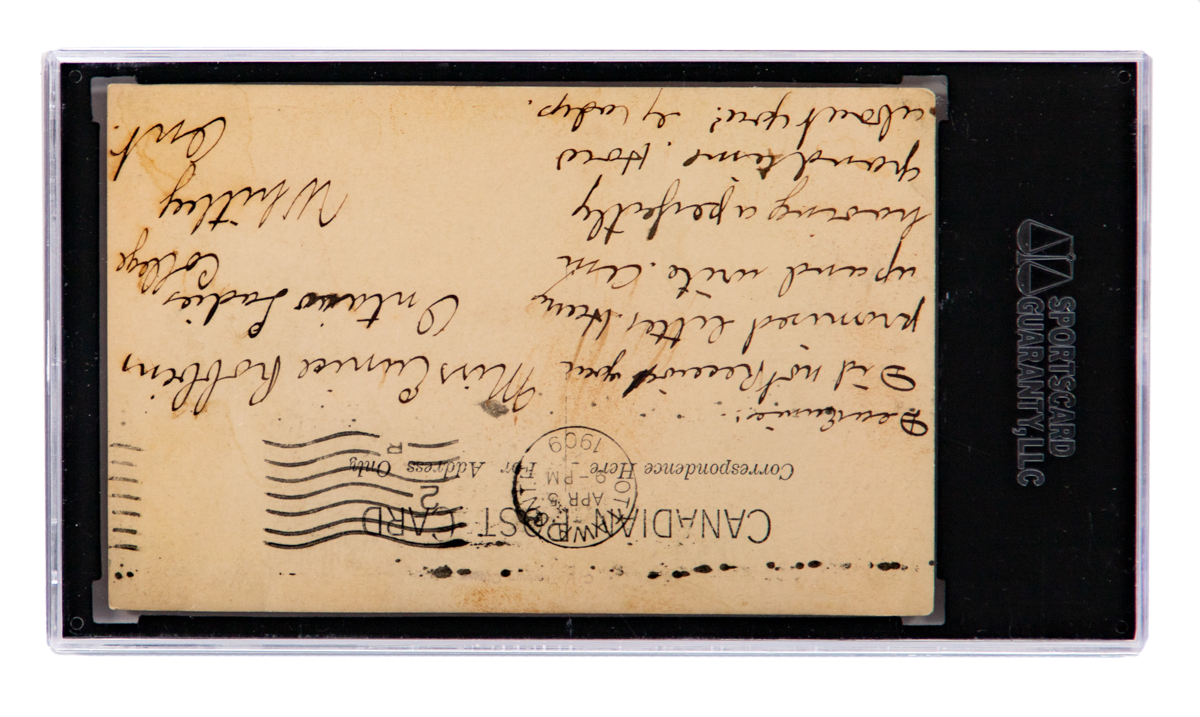 CANADIAN POST CARD
Correspondence Here
For Address Only
OTTAWA ONT.
APR 5
8-PM
1909
2
R
Dear Eunice:
Did not Receive your
promised letter. Hurry
up and write. Am
having a perfectly
grand time. How
about you? Gladys.
Miss Eunice Robbins
Ontario Ladies
College
Whitby
Ont.
SPORTSCARD
GUARANTY, LLC